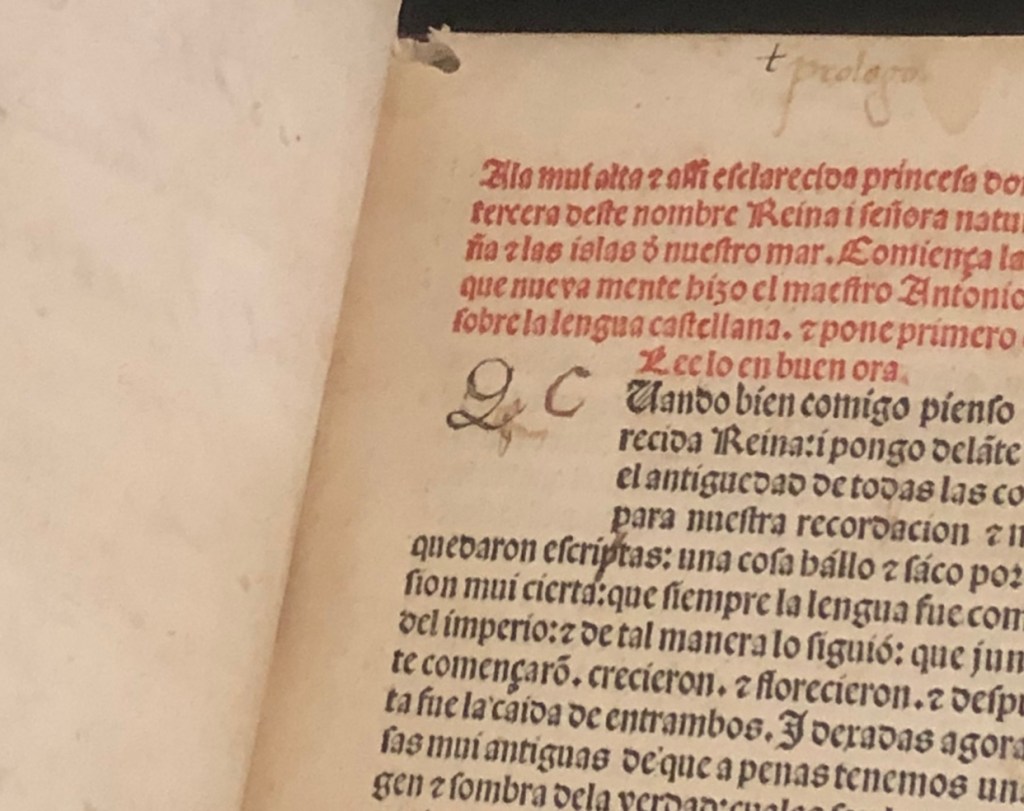 † prologo
Ala mui alta ⁊ assi esclarecida princesa do
tercera deste nombre Reina i señora natu
ña ⁊ las islas d̓ nuestro mar. Comiença la
que nueva mente hizo el maestro Antonio
sobre la lengua castellana. ⁊ pone primero
Lee lo en buen ora.
Q C Uando bien comigo pienso
recida Reina: i pongo delãte
el antiguedad de todas las co
para nuestra recordacion ⁊ m
quedaron escriptas: una cosa hállo ⁊ sáco por
sion mui cierta: que siempre la lengua fue com
del imperio: ⁊ de tal manera lo siguió: que jun
te començarõ. crecieron. ⁊ florecieron. ⁊ despu
ta fue la caida de entrambos. I dexadas agora
sas mui antiguas de que a penas tenemos un
gen ⁊ sombra dela verdad: cuales